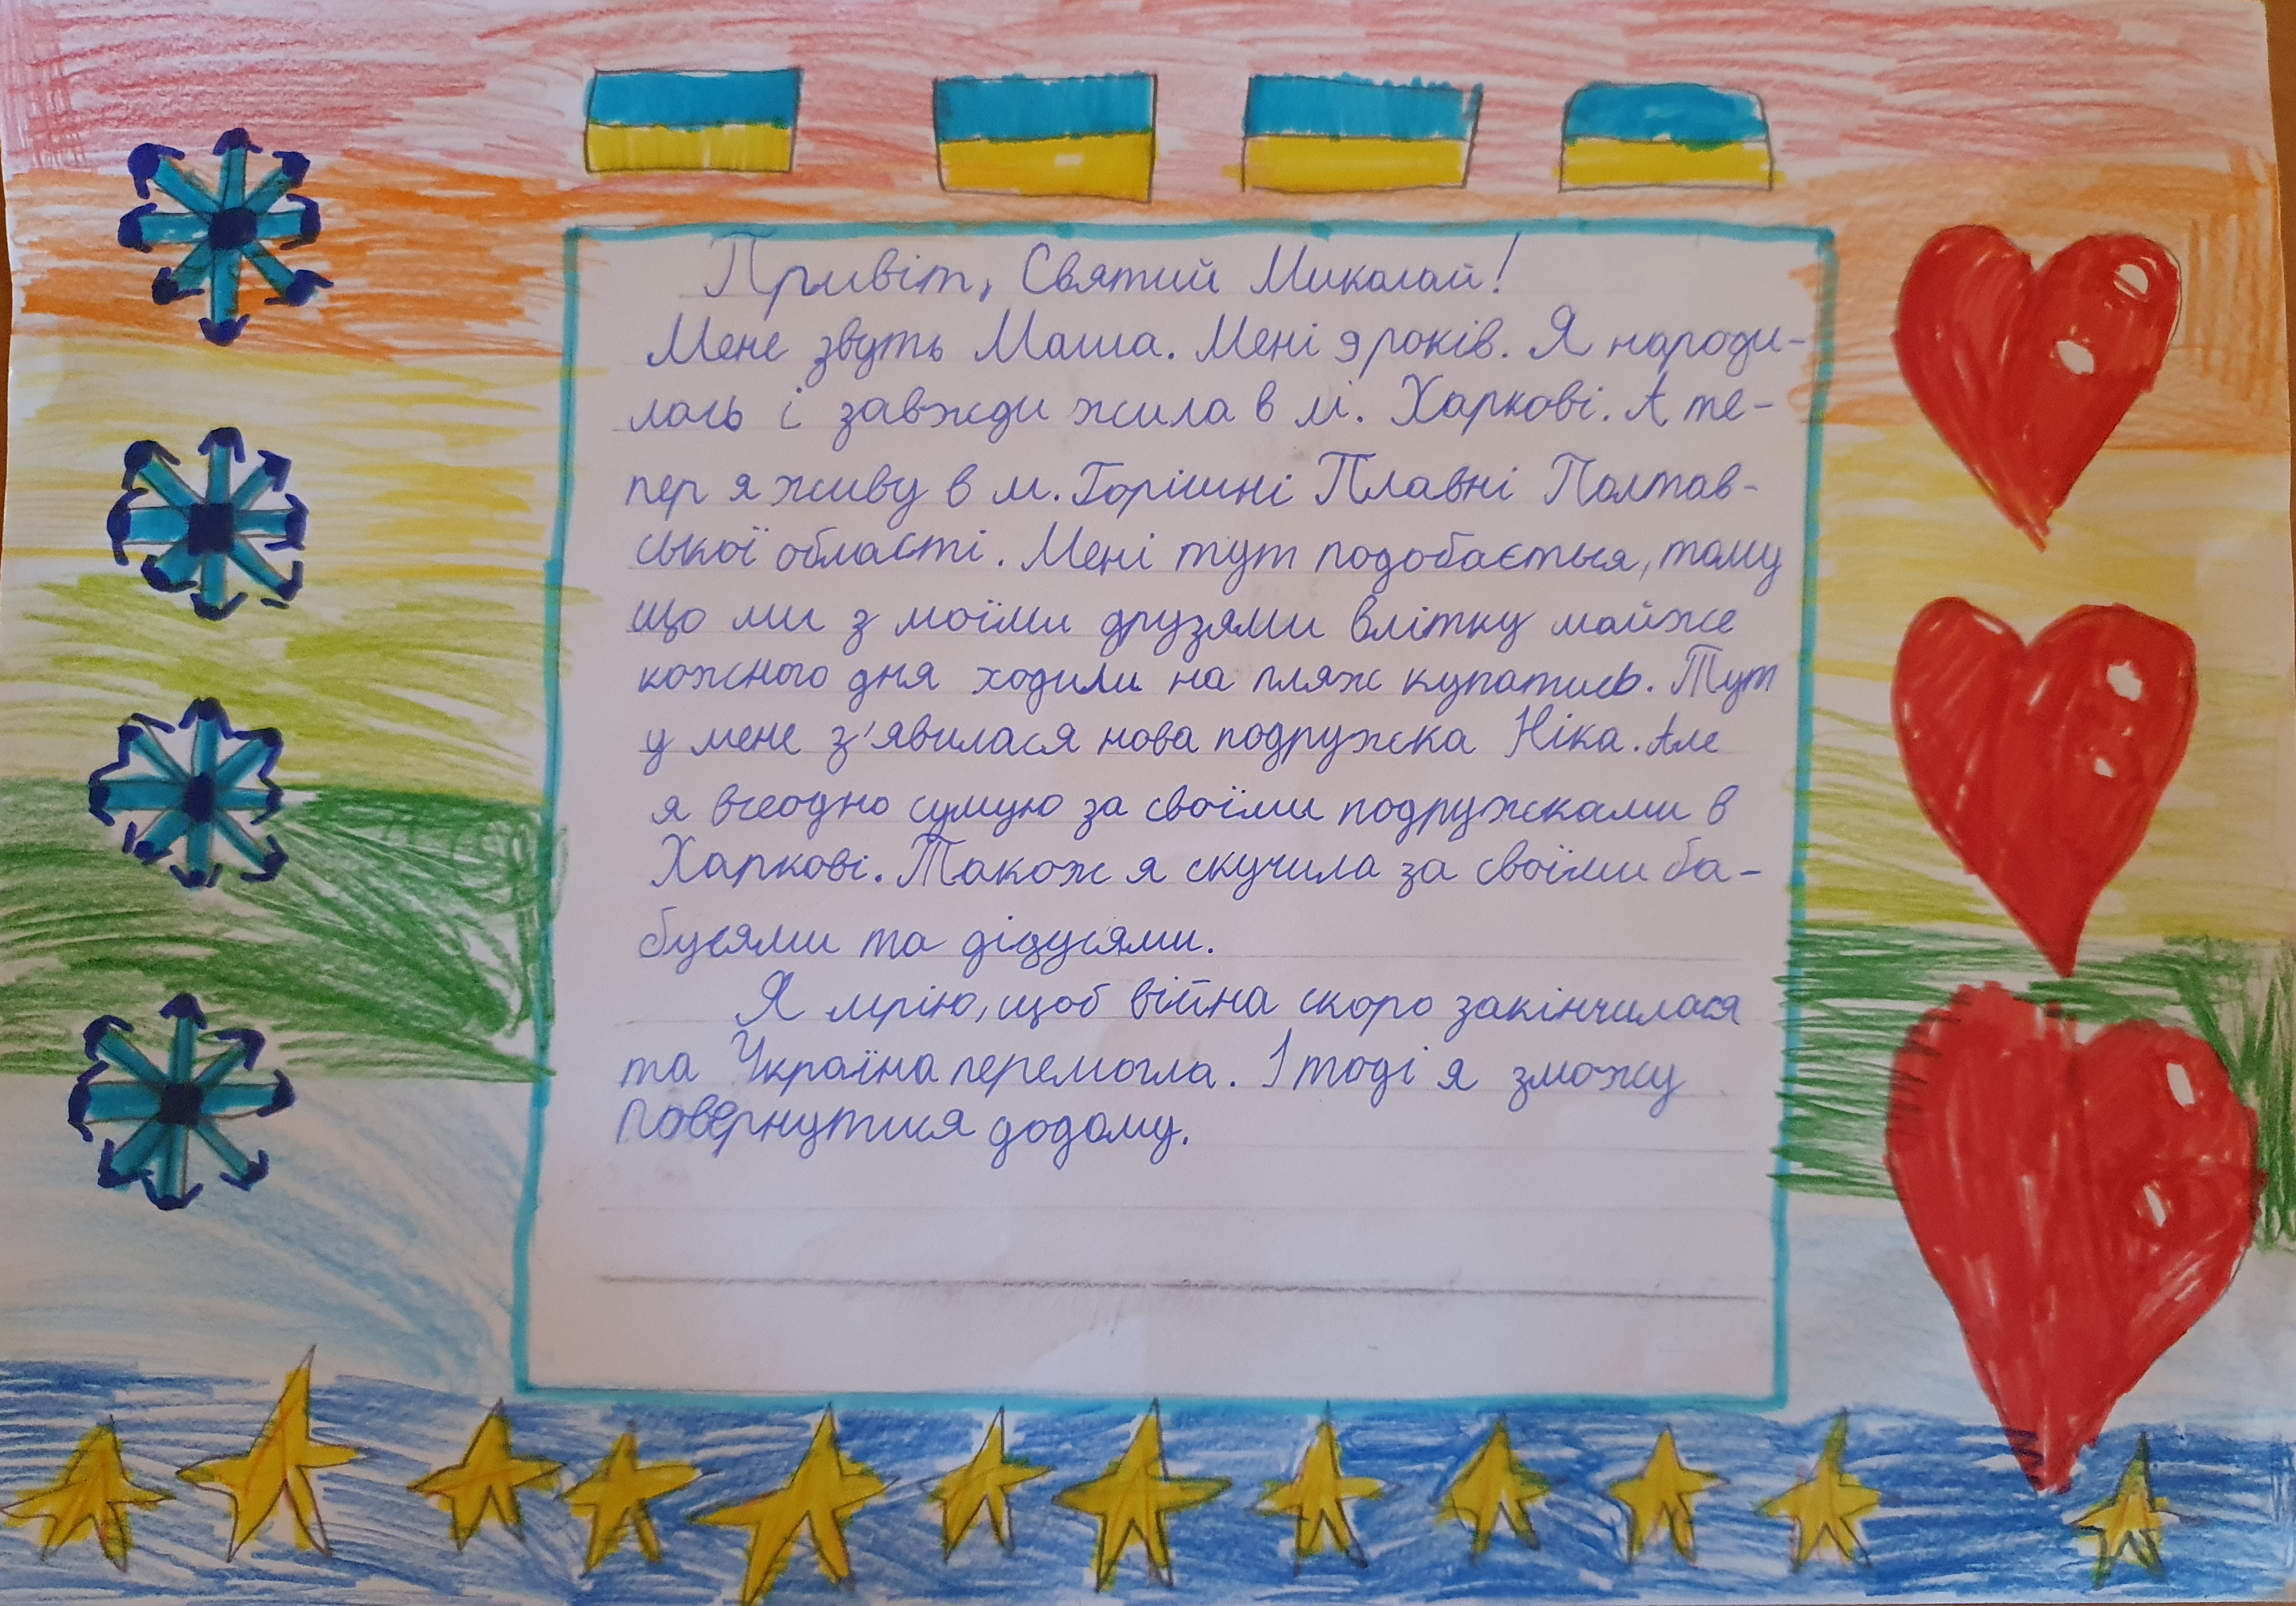 Привіт, Святий Миколай!
Мене звуть Маша. Мені 9 років. Я народи-
лась і завжди жила в м. Харкові. А те-
пер я живу в м. Горішні Плавні Полтав-
ської області. Мені тут подобається, тому
що ми з моїми друзями влітку майже
кожного дня ходили на пляж купатись. Тут
у мене з'явилася нова подружка Ніка. Але
я всеодно сумую за своїми подружками в
Харкові. Також я скучила за своїми ба-
бусями та дідусями.
Я мрію, щоб війна скоро закінчилася
та Україна перемогла. І тоді я зможу
повернутися додому.